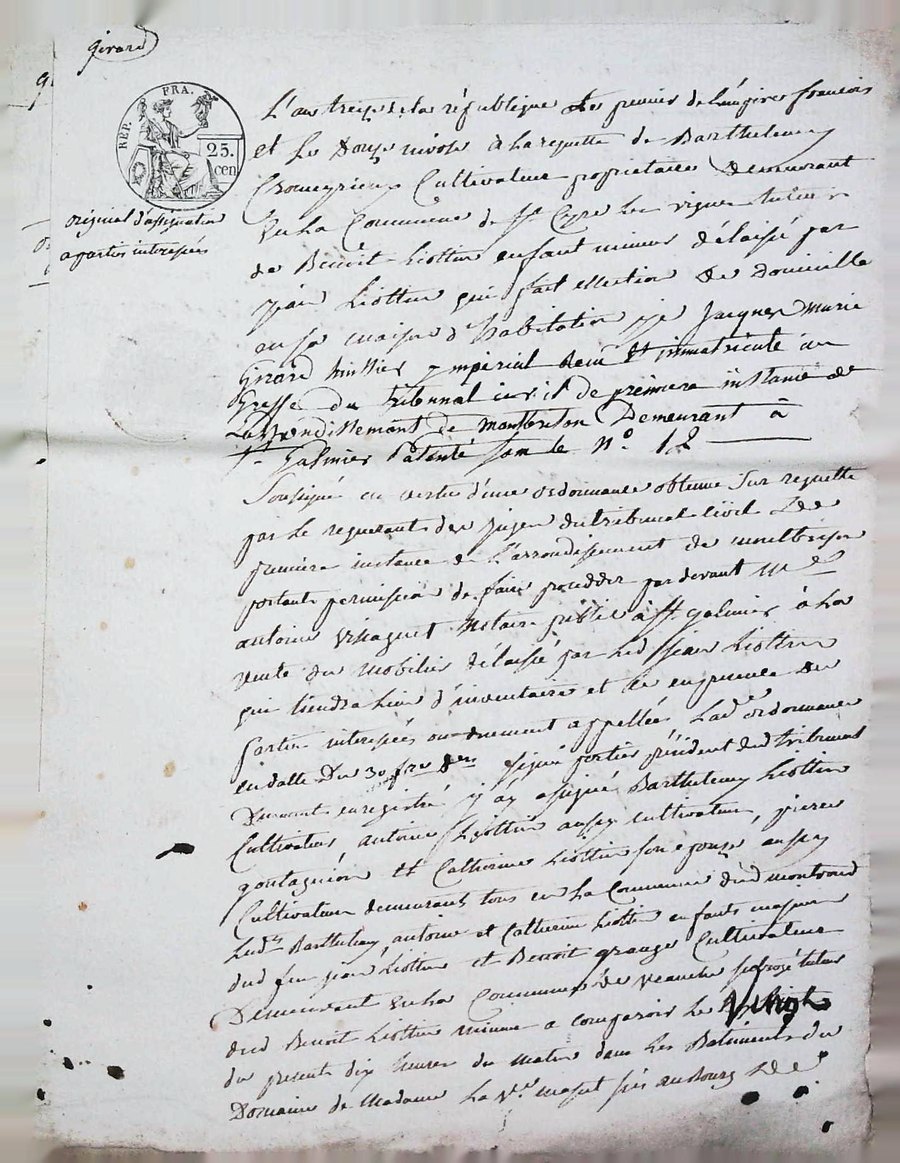 Girard
REP. FRA.
25.
cen
original d'assignation
a parties interessées
L'an treize de la république Le premier de L'empire francois
et Le Douze nivose a La requette de Barthelemy
Cultivateur proprietaire Demeurant
En La Commune de St Cyr Les vignes tuteur
de Benoit Liottin enfant mineur délaissé par
jean Liottin qui fait ellection de Domicille
en sa maison d'habitation je Jacques Marie
Girard huissier ympérial reçu et immatriculé au
Greffe du tribunal civil de première instance de
L'arrondissement de montbrison Demeurant à
St Galmier Patenté sous le N° 12
Soussigné en vertu d'une ordonnance obtenue sur requette
par Le requerant des juges du tribunal Civil de
premiere instance de L'arrondissement de montbrison
portant permission de faire proceder par devant Me
antoine notaire public à St galmier à La
vente du mobilier délaissé par Led jean Liottin
qui tiendra Lieu d'inventaire et ce en presence des
parties interessées ou duement appellées Lade ordonnance
en datte Du 30 signée portier président dud tribunal
Duement enregistré j'ay assigné Barthelemy Liottin
Cultivateur antoine Liottin aussy cultivateur, pierre
et Catherine Liottin son epouse aussy
Cultivateur demeurants tous en La Commune dud montrond
Lesds Barthelemy, antoine et Catherine Liottin enfants majeurs
dud feu jean Liottin et Benoit grange Cultivateur
Demeurant en La Commune de veauche subrogé tuteur
dud Benoit Liottin mineur a comparoir Le
du present dix heures du matin dans Les Batiments du
Domaine de Madame La Ve près au Bourg de